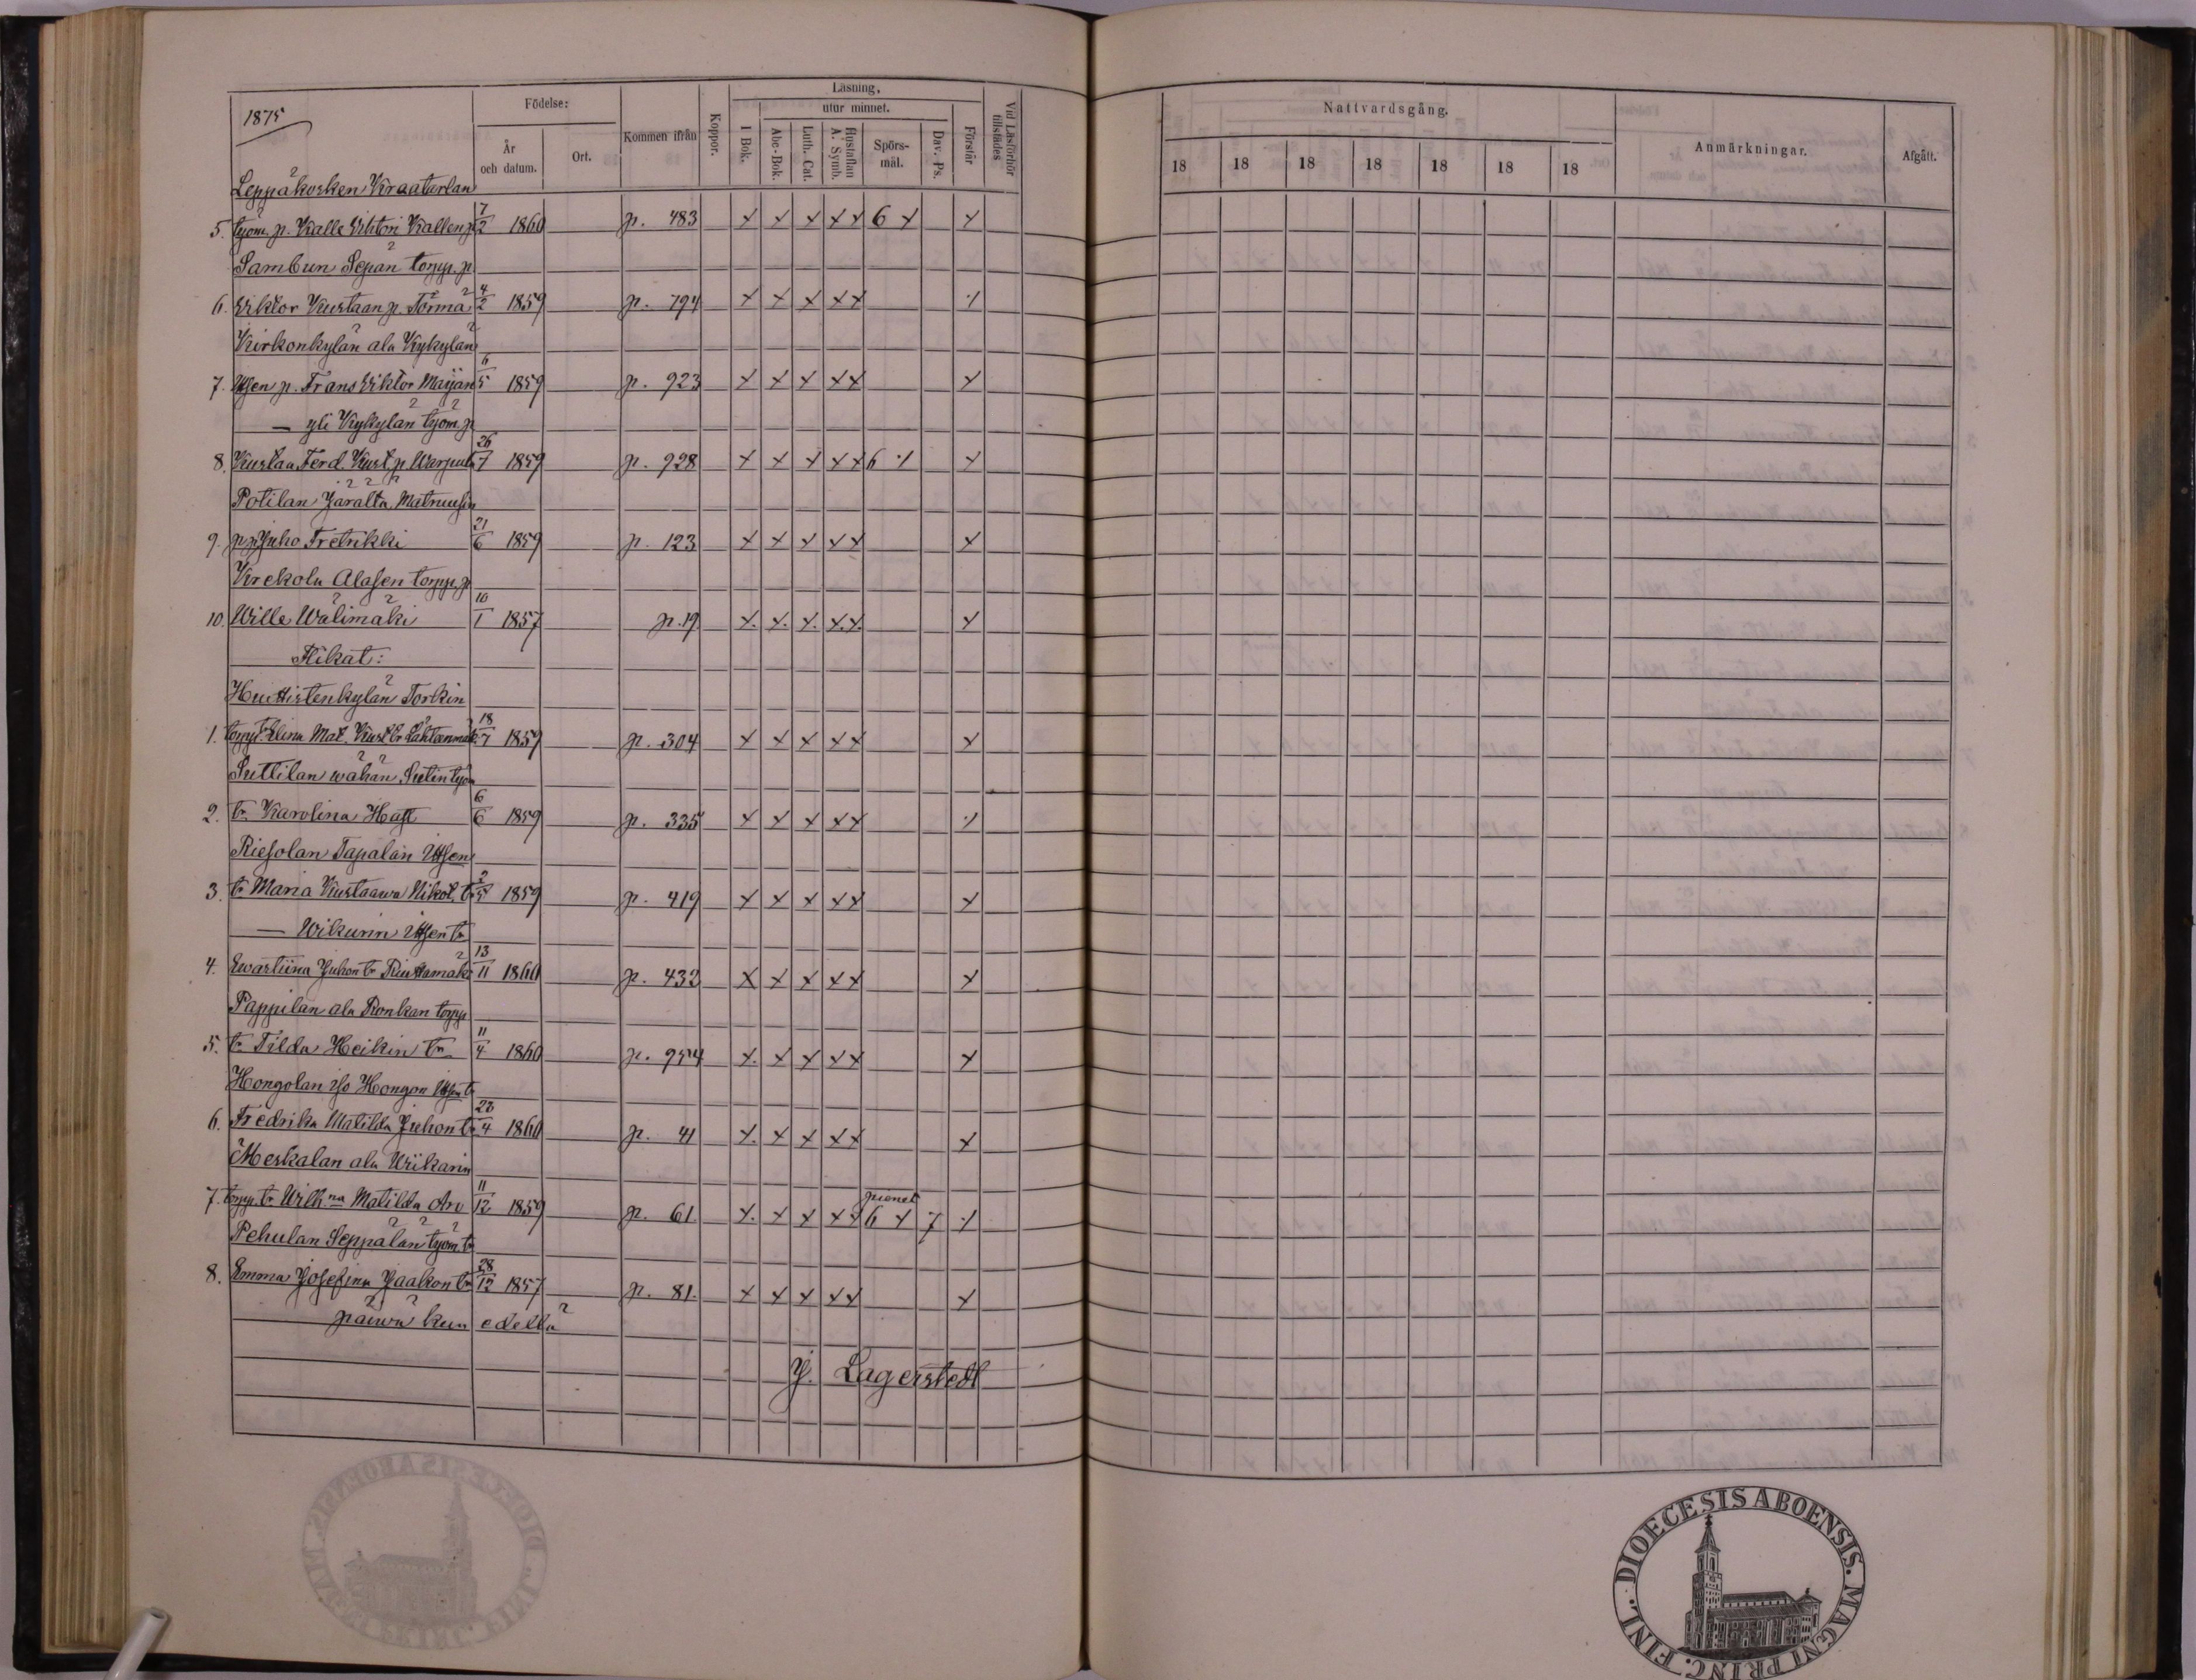 1875
Födelse:
År och datum.
Ort.
Kommen ifrån
Koppor.
Läsning,
utur minnet.
I Bok.
Abc-Bok.
Luth. Cat.
Hustaflan A. Symb.
Spörs-mål.
Dav. Ps.
Förstår
Vid Läsförhör tillstädes
Nattvardsgång.
18 18 18 18 18 18 18
Anmärkningar.
Afgått.
Leppäkosken Kraaturlan
5. työm. p. Kalle Vihtori Kallen p. 7/2 1860 p. 483 x x x x x 6 x x
Sambun Sepän torpp. p.
6. Viktor Kustaan p. Törmä 4/2 1859 p. 794 x x x x x ·/·
Kirkonkylän ala Kykylän
7. Itsen p. Frans Viktor Maijan 6/5 1859 p. 923 x x x x x x
— yli Kykylän työm. p.
8. Kustaa Ferd. Kust. p. Werpula 26/7 1859 p. 928 x x x x x 6 ·/· x
Potilan Jaralta Matruusin
9. p. p. Juho Fretrikki 21/6 1859 p. 123 x x x x x x
Krekola Alasen torpp. p.
10. Wille Wälimäki 10/1 1857 p. 19 x. x. x. x. x. x
Flikat:
Huittistenkylän Torkin
1. torpp. t. Elina Mat. Kust. tr Lähteenmäk. 18/7 1859 p. 304 x x x x x x
Suttilan wähän Sutin työm
2. tr. Karolina Hast 6/6 1859 p. 335 x x x x x ·/·
Riesolan Tapalan Itsen
3. tr. Maria Kustaawa Nikol. tr 2/5 1859 p. 419 x x x x x x
— Wikurin Itsen tr
4. Ewastiina Juhon tr Riuttamäki 13/11 1860 p. 432 x x x x x x
Pappilan ala Ronkan torpp
5. tr. Tilda Heikin tr 11/4 1860 p. 954 x. x x x x x
Hongolan iso Hongon Itsen tr
6. Fredrika Matilda Juhon tr 22/4 1860 p. 41 x. x x x x x
Meskalan ala Wiikarin
7. torpp. tr. Wilh:na Matilda Aro 11/12 1859 p. 61. x. x x x x pienet 6 x 7 ·/·
Pehulan Seppälän työm. tr
8. Emma Josefina Jaakon tr 28/12 1857 p. 81. x x x x x x
päiwä kun edellä
J. Lagerstedt
DIOECESIS ABOENSIS. MAGNI PRINC. FINL.